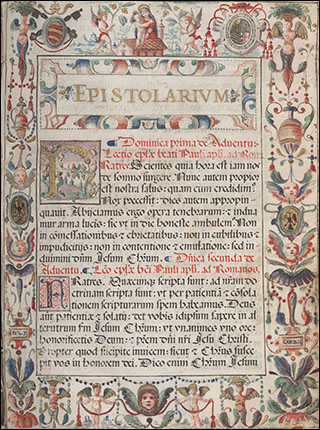 EPISTOLARIVM
Dominica prima de Aduentu:
Lectio epłæ beati Pauli apłi. ad Rom
Ratres: Scientes quia hora est iam nos
de somno surgere. Nunc autem propior
est nostra salus: quam cum credidim⁹
Nox precessit: dies autem appropin
quauit. Abiiciamus ergo opera tenebrarum: & indua
mur arma lucis: sic vt in die honeste ambulem⁹. Non
in comessationibus & ebrietatibus: non in cubilibus &
impudicitiis: non in contentione & emulatione: sed in
duimini dñm Jesum Chrūm. Dñica secunda de
Aduentu. Leo epłæ bti Pauli apłi. ad Romanos.
Ratres. Quæcunqz scripta sunt: ad nr̄am do
ctrinam scripta sunt: vt per patientiā & cōsola
tionem scripturarum spem habeamus. Deus
aut patientiæ & solatii: det vobis idipsum sapere in al
terutrum scdm Jesum Chrūm: vt vnanimes vno ore:
honorificetis Deum: & prem dñi nri Jesu Christi.
Propter quod suscipite inuicem: sicut & Chrūs susce
pit vos in honorem dei. Dico enim Chrūm Jesum
CARITAS